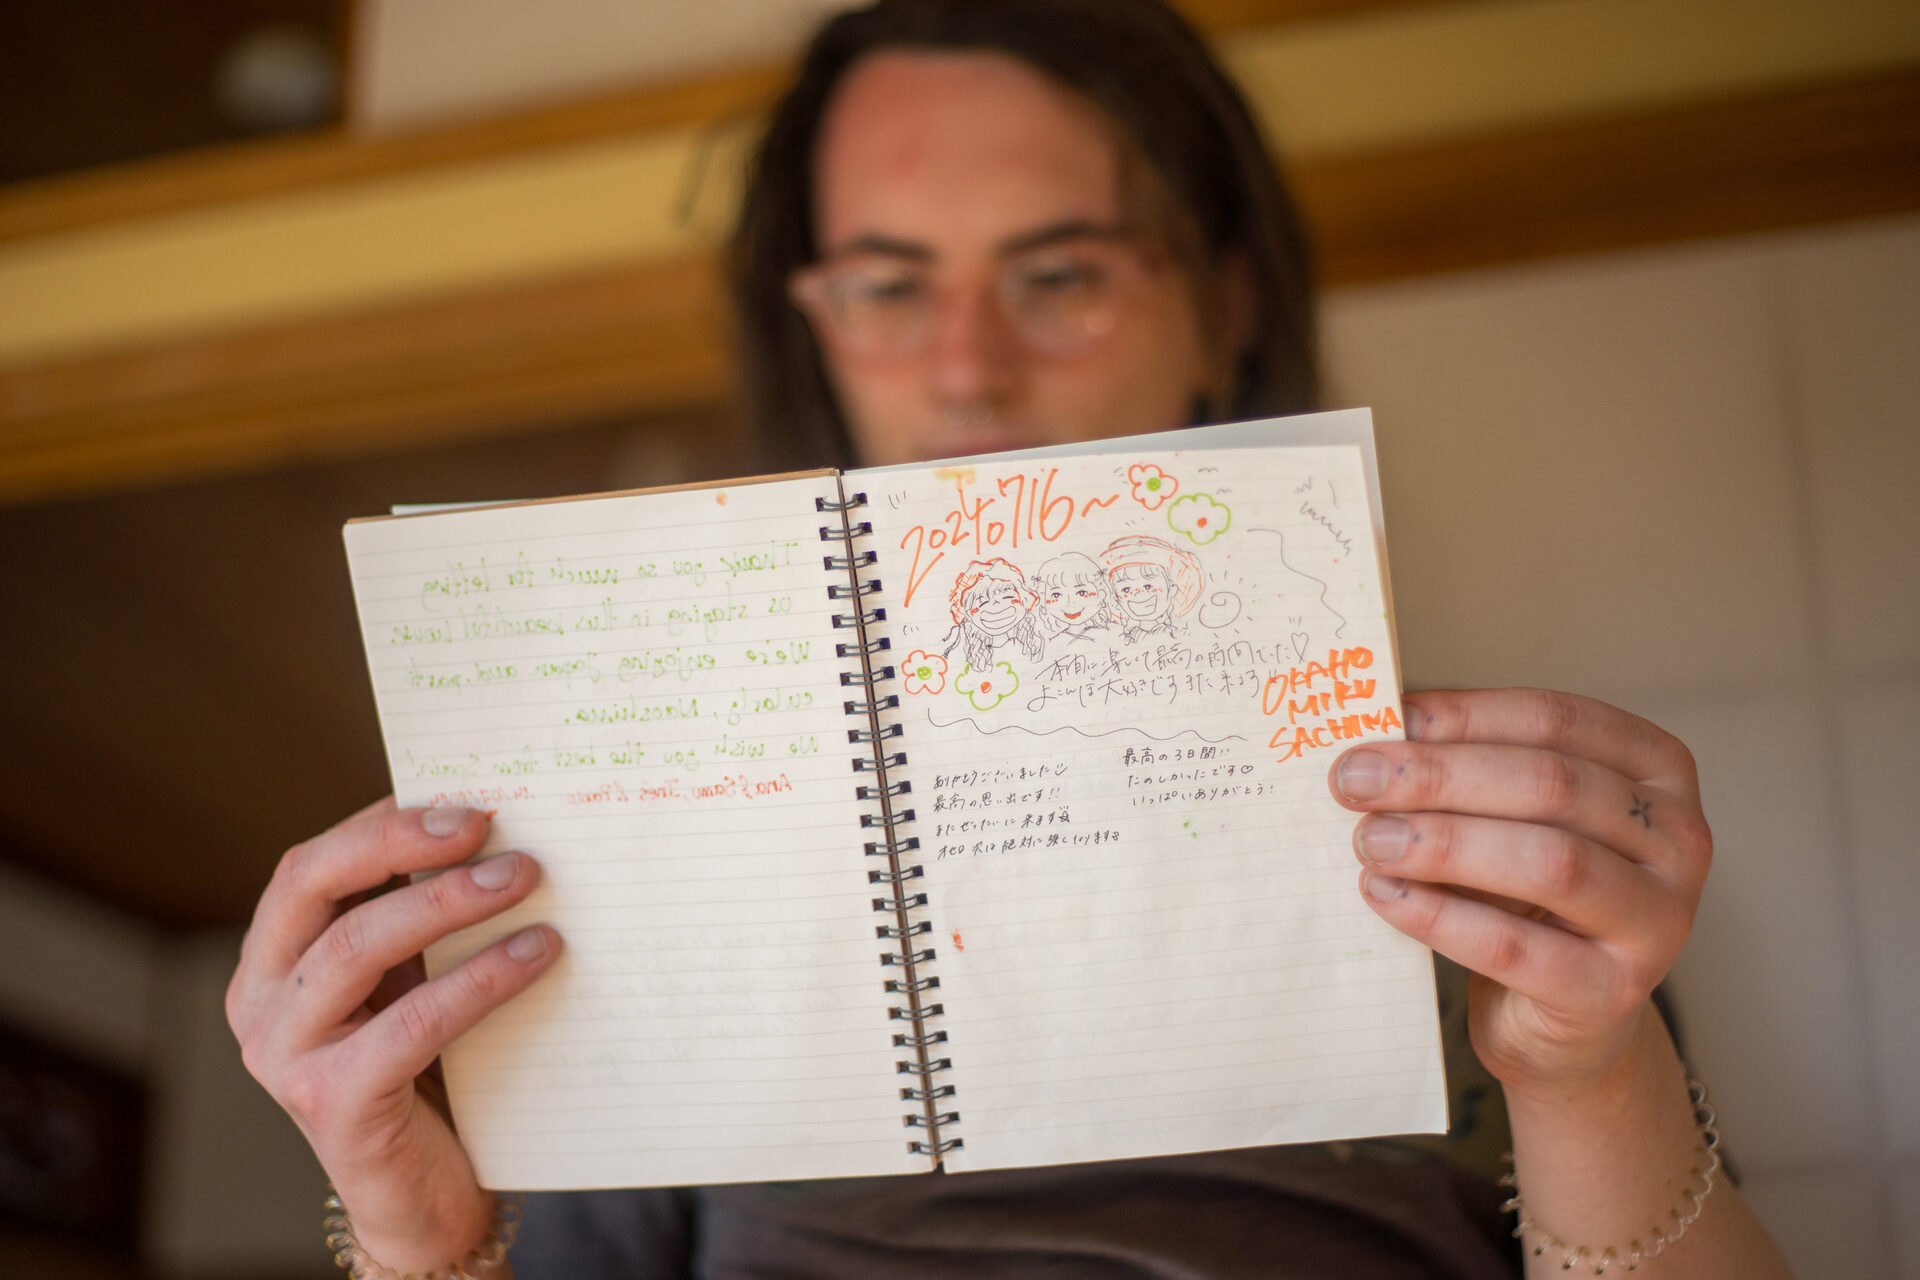 Thank you so much for letting
us staying in this beautiful house.
We're enjoying Japan and, parti-
cularly, Naoshima.
We wish you the best from Spain!
Ana & Samu, Inés & Pablo 14/07/2024
20240716~
本当に楽しくて最高の時間でした♡
よこんぼ大好きですまた来ます
OKAHO
MIKU
SACHIKA
ありがとうございました
最高の思い出です!!
またぜったいに来ます
オセロ次は絶対に強くなります
最高の3日間!!
たのしかったです♡
いっぱいありがとう!